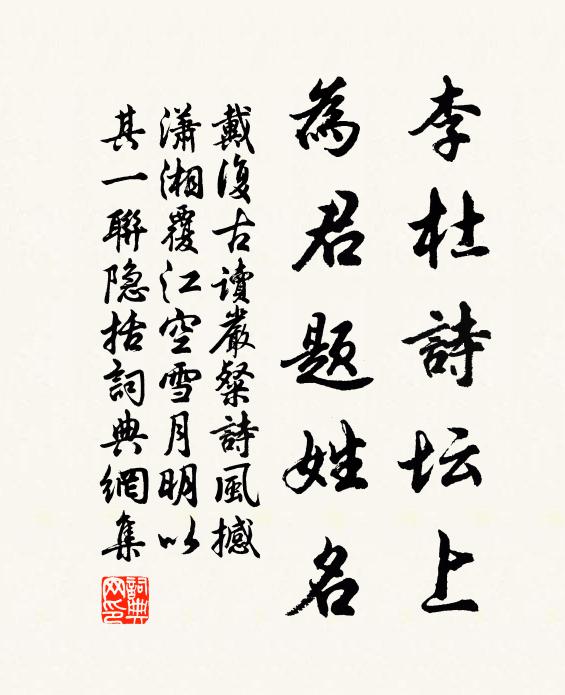 李杜詩坛上
為君题姓名
戴復古讀嚴粲詩風撼
瀟湘覆江空雪月明以
其一聯隐括詞典網集
詞典
网印